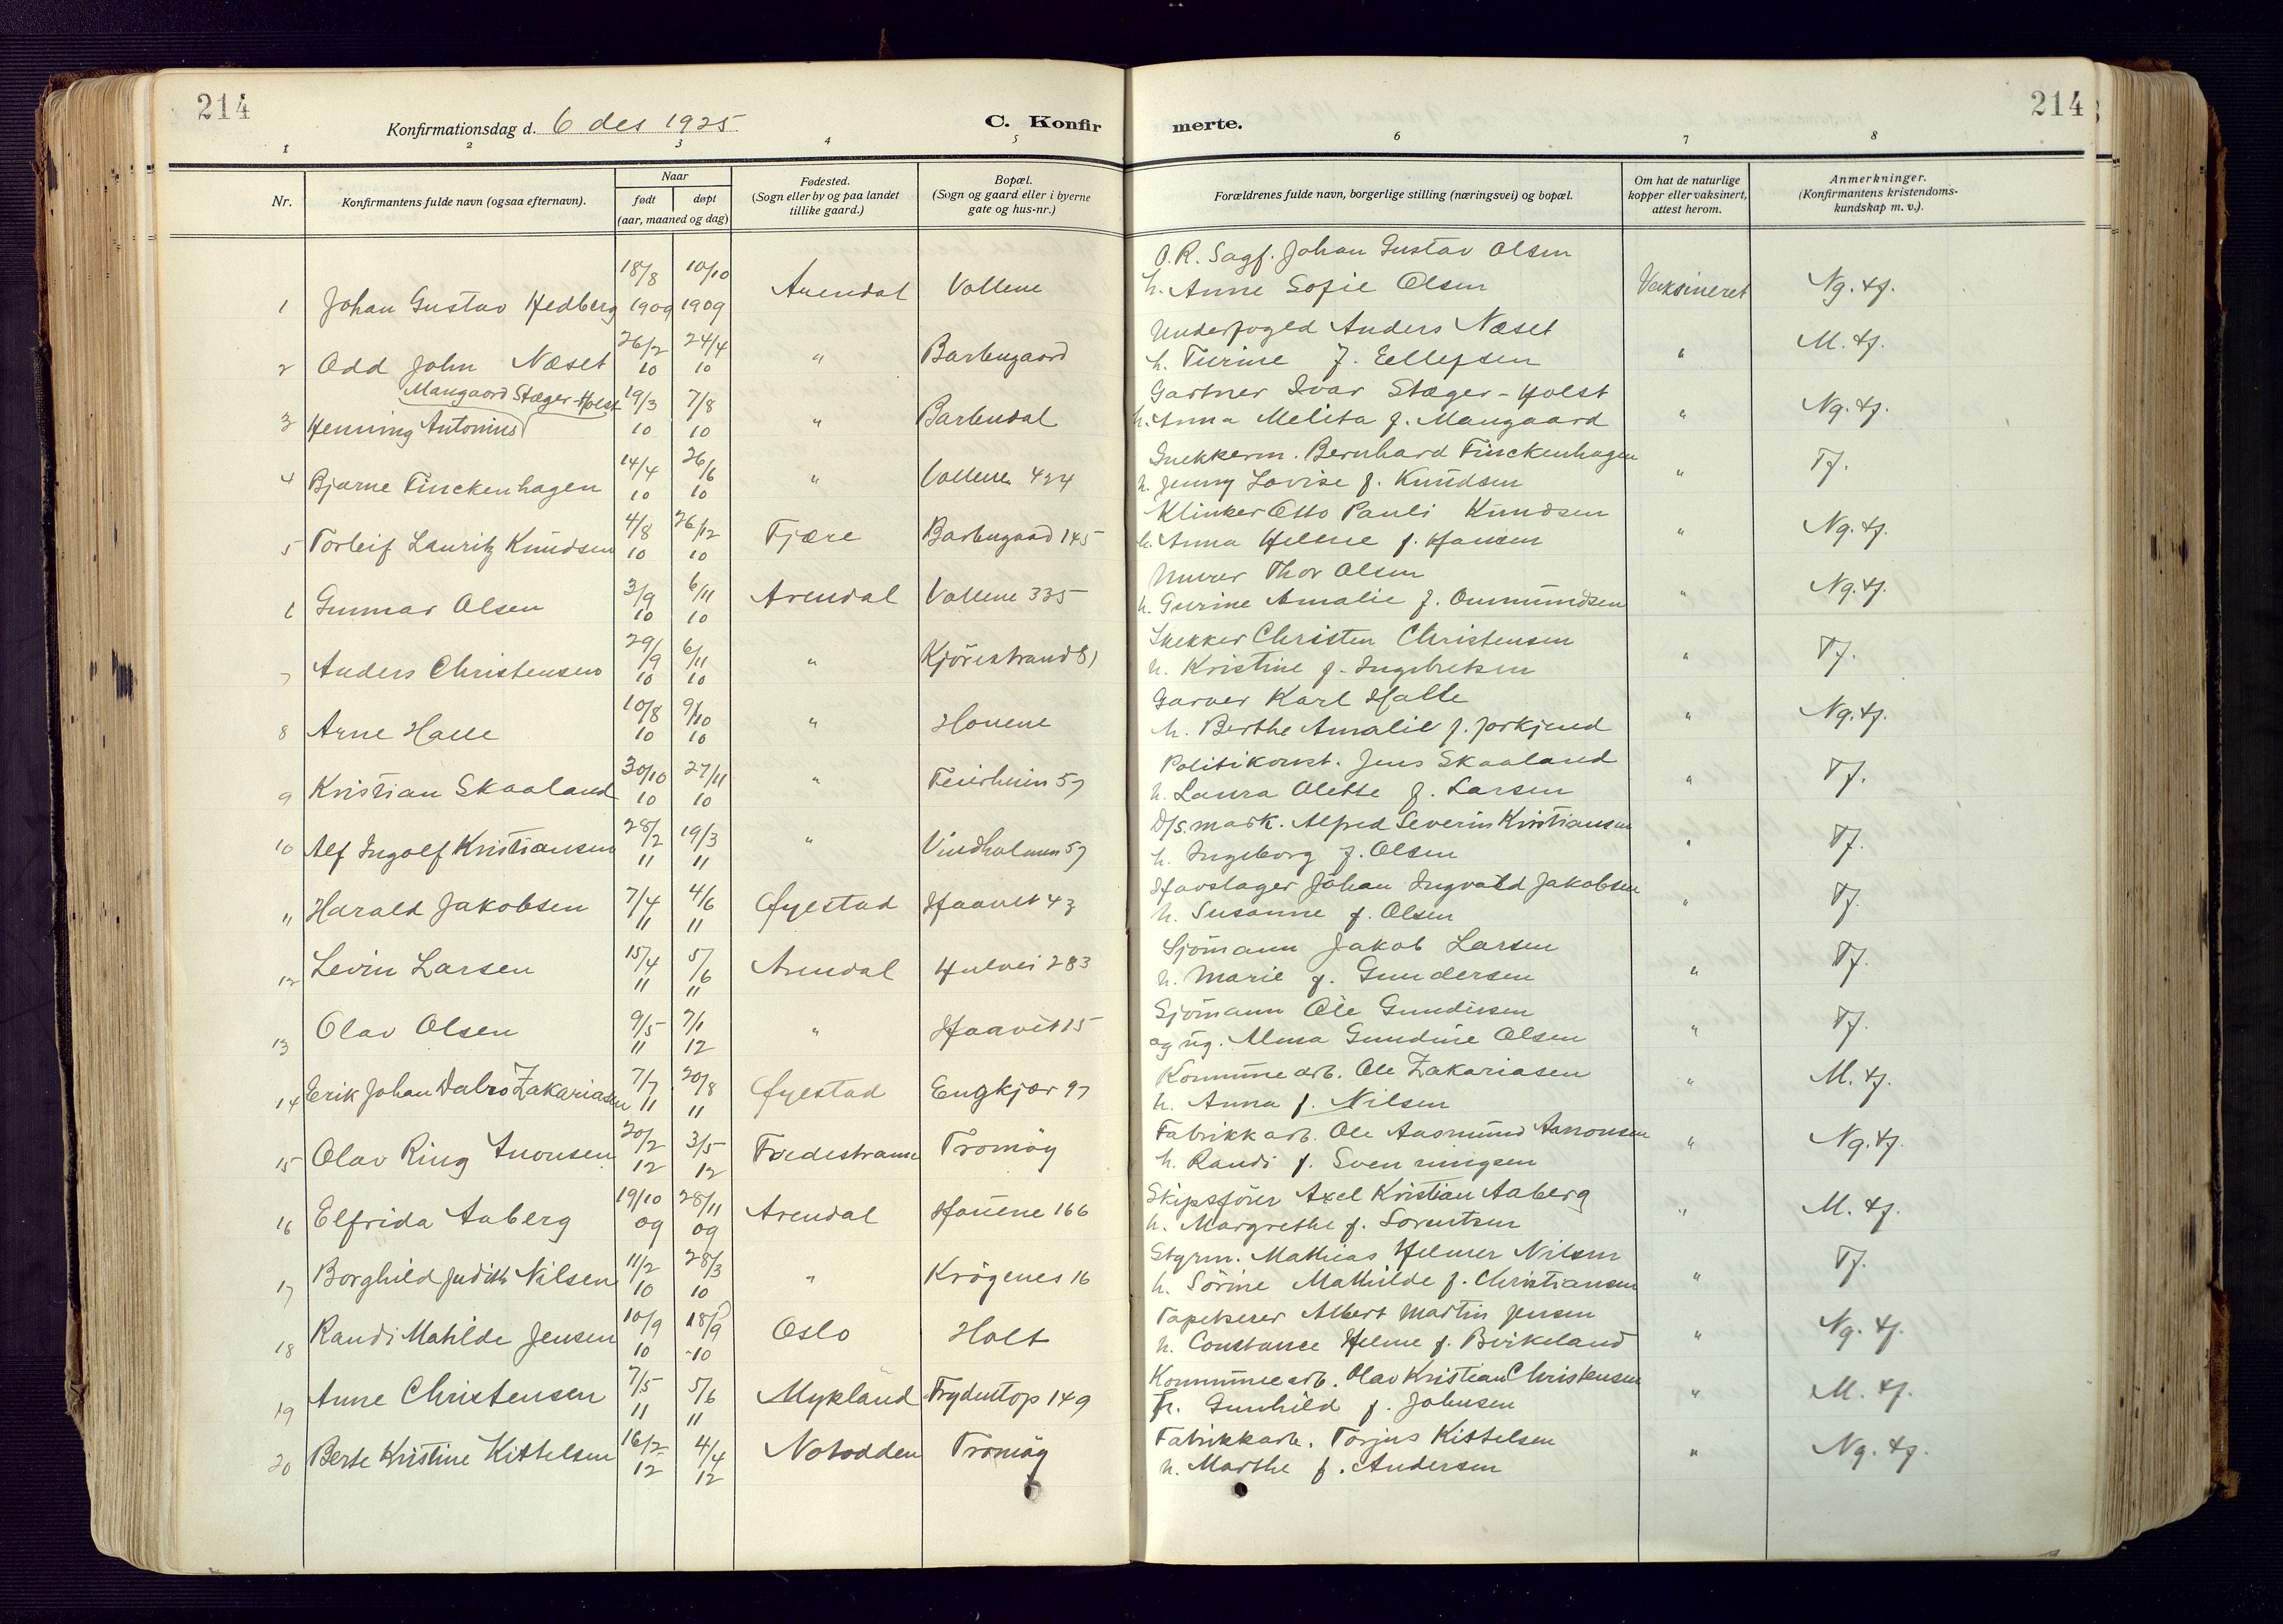 214
214
Konfirmationsdag d. 6 des 1925
C. Konfirmerte.
1 2 3 4 5 6 7 8
Nr.
Konfirmantens fulde navn (ogsaa efternavn).
Naar
født
døpt
(aar, maaned og dag)
Fødested.
(Sogn eller by og paa landet
tillike gaard.)
Bopæl.
(Sogn og gaard eller i byerne
gate og hus-nr.)
Forældrenes fulde navn, borgerlige stilling (næringsvei) og bopæl.
Om hat de naturlige
kopper eller vaksinert,
attest herom.
Anmerkninger.
(Konfirmantens kristendoms-
kundskap m. v.).
18/8 10/10 O.R. Sagf. Johan Gustav Olsen
1 Johan Gustav Hedberg 1909 1909 Arendal Vollene h. Anne Sofie Olsen Vaksineret Ng. tf.
26/2 24/4 Underfoged Anders Næset
2 Odd John Næset 10 10 " Barbugaard h. Turine f. Ellefsen " M. tf.
Mangaard Stæger-Holst 19/3 7/8 Gartner Ivar Stæger-Holst
3 Henning Antonius 10 10 " Barbudal h. Anna Melita f. Mangaard " Ng. tf.
14/4 26/6 Snekkerm. Bernhard Finckenhagen
4 Bjarne Finckenhagen 10 10 " Vollene 424 h. Jenny Lovise f. Knudsen " Tf.
4/8 26/12 Klinker Otto Pauli Knudsen
5 Torleif Lauritz Knudsen 10 10 Fjære Barbugaard 145 h. Anna Helene f. Hansen " Ng. tf.
3/9 6/11 Murer Thor Olsen
6 Gunnar Olsen 10 10 Arendal Vollene 335 h. Gurine Amalie f. Ommundsen " Ng. tf.
29/9 6/11 Snekker Christen Christensen
7 Anders Christensen 10 10 " Kjörestrand 81 h. Kristine f. Ingebretsen " Tf.
10/8 9/10 Garver Karl Halle
8 Arne Halle 10 10 " Houene h. Berthe Amalie f. Jorkjend " Ng. tf.
30/10 27/11 Politikonst. Jens Skaaland
9 Kristian Skaaland 10 10 " Feierheim 57 h. Laura Olette f. Larsen " Tf.
28/2 19/3 D/s. mask. Alfred Severin Kristiansen
10 Alf Ingolf Kristiansen 11 11 " Vindholmen 57 h. Ingeborg f. Olsen " Tf.
7/4 4/6 Havslager Johan Ingvald Jakobsen
11 Harald Jakobsen 11 11 Øyestad Haavet 43 h. Susanne f. Olsen " Tf.
15/4 5/6 Sjömann Jakob Larsen
12 Levin Larsen 11 11 Arendal Hulvei 283 h. Marie f. Gundersen " Tf.
9/5 7/1 Sjömann Ole Gundersen
13 Olav Olsen 11 12 " Haavet 15 og ug. Alma Gundine Olsen " Tf.
7/7 20/8 Kommunearb. Ole Zakariasen
14 Erik Johan Dalro Zakariasen 11 11 Øyestad Engkjær 97 h. Anna f. Nilsen " M. tf.
20/2 3/5 Fabrikkarb. Ole Aasmund Aanonsen
15 Olav Ring Anonsen 12 12 Tvedestrand Tromöy h. Randi f. Svenningsen " Ng. tf.
19/10 28/11 Skipsförer Axel Kristian Aaberg
16 Elfrida Aaberg 09 09 Arendal Houene 166 h. Margrethe f. Sorentsen " M. tf.
11/2 28/3 Styrm. Mathias Helmer Nilsen
17 Borghild Judith Nilsen 10 10 " Krögenes 16 h. Sörine Mathilde f. Christiansen " Tf.
10/9 18/9 Tapetserer Albert Martin Jensen
18 Randi Matilde Jensen 10 10 Oslo Holt h. Constance Helene f. Birkeland " Ng. tf.
7/5 5/6 Kommunearb. Olav Kristian Christensen
19 Anne Christensen 11 11 Mykland Frydentop 149 h. Gunhild f. Johnsen " M. tf.
16/2 4/4 Fabrikkarb. Torjus Kittelsen
20 Berte Kristine Kittelsen 12 12 Notodden Tromöy h. Marthe f. Andersen " Ng. tf.